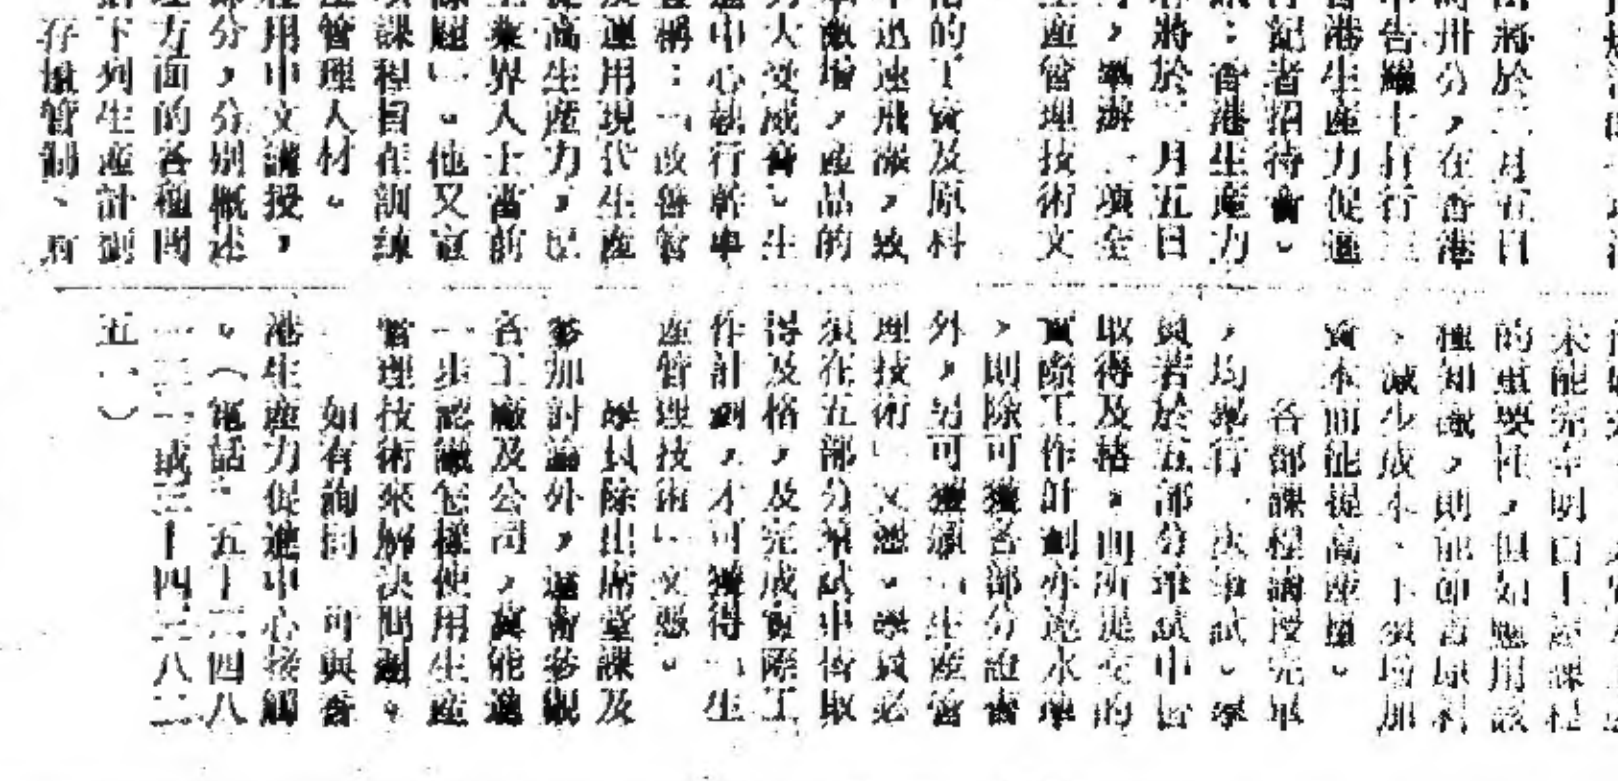 出將於二月五日
時卅分，在香港
中告羅士打行三
香港生產力促進
行記者招待會。
訊：香港生產力
將於二月五日
，舉辦一項全
生產管理技術文
格的工資及原料
不迅速飛漲，致
激增，產品的
力大受威脅。生
進中心執行幹事
稱：「改善管
及運用現代生產
提高生產力，是
業界人士當前
課題」。他又宣
課程旨在訓練
管理人材。
用中文講授，
部分，分別概述
理方面的各種問
下列生產計劃
存量管制、
未能完全明白上述課程
的重要性，但如應用該
種知識，則能節省原料
、減少成本、不須增加
資本而能提高產量。
各部課程講授完畢
，均舉行一次筆試。學
員若於五部分筆試中皆
取得及格，而所提交的
實際工作計劃亦達水準
，則除可獲各部分證書
外，另可獲頒「生產管
理技術」文憑。學員必
須在五部分筆試中皆取
得及格，及完成實際工
作計劃，才可獲得「生
產管理技術」文憑。
學員除出席堂課及
參加討論外，還會參觀
各工廠及公司，冀能進
一步認識怎樣使用生產
管理技術來解決問題。
如有詢問　可與香
港生產力促進中心接觸
。（電話：五十三四八
一三一或三十四三八二
五一）